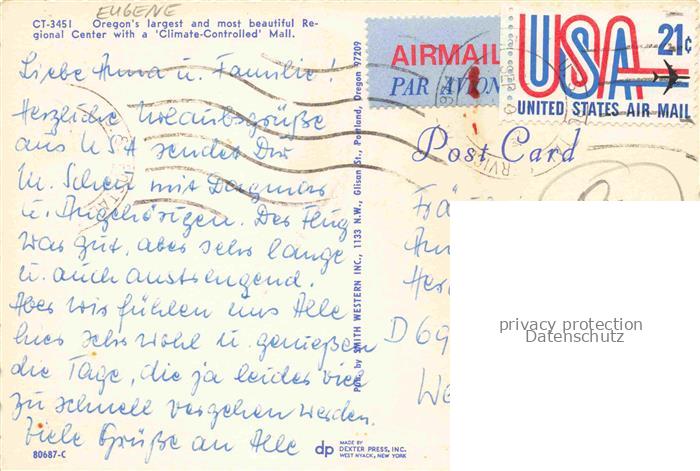 EUGENE
CT-3451 Oregon's largest and most beautiful Re-
gional Center with a 'Climate-Controlled' Mall.
Liebe Anna u. Familie!
Herzliche Urlaubsgrüße
aus USA sendet Dir
M. Scheu mit Dagmar
u. Angehörigen. Der Flug
war gut, aber sehr lange
u. auch anstrengend.
Aber wir fühlen uns Alle
hier sehr wohl u. genießen
die Tage, die ja leider viel
zu schnell vergehen werden.
Viele Grüße an Alle
80687-C
Pub. by SMITH WESTERN INC., 1133 N.W., Glisan St., Portland, Oregon 97209
dp MADE BY
DEXTER PRESS, INC.
WEST NYACK, NEW YORK
AIRMAIL
PAR AVION
USA 21¢
UNITED STATES AIR MAIL
Post Card
D 69
privacy protection
Datenschutz